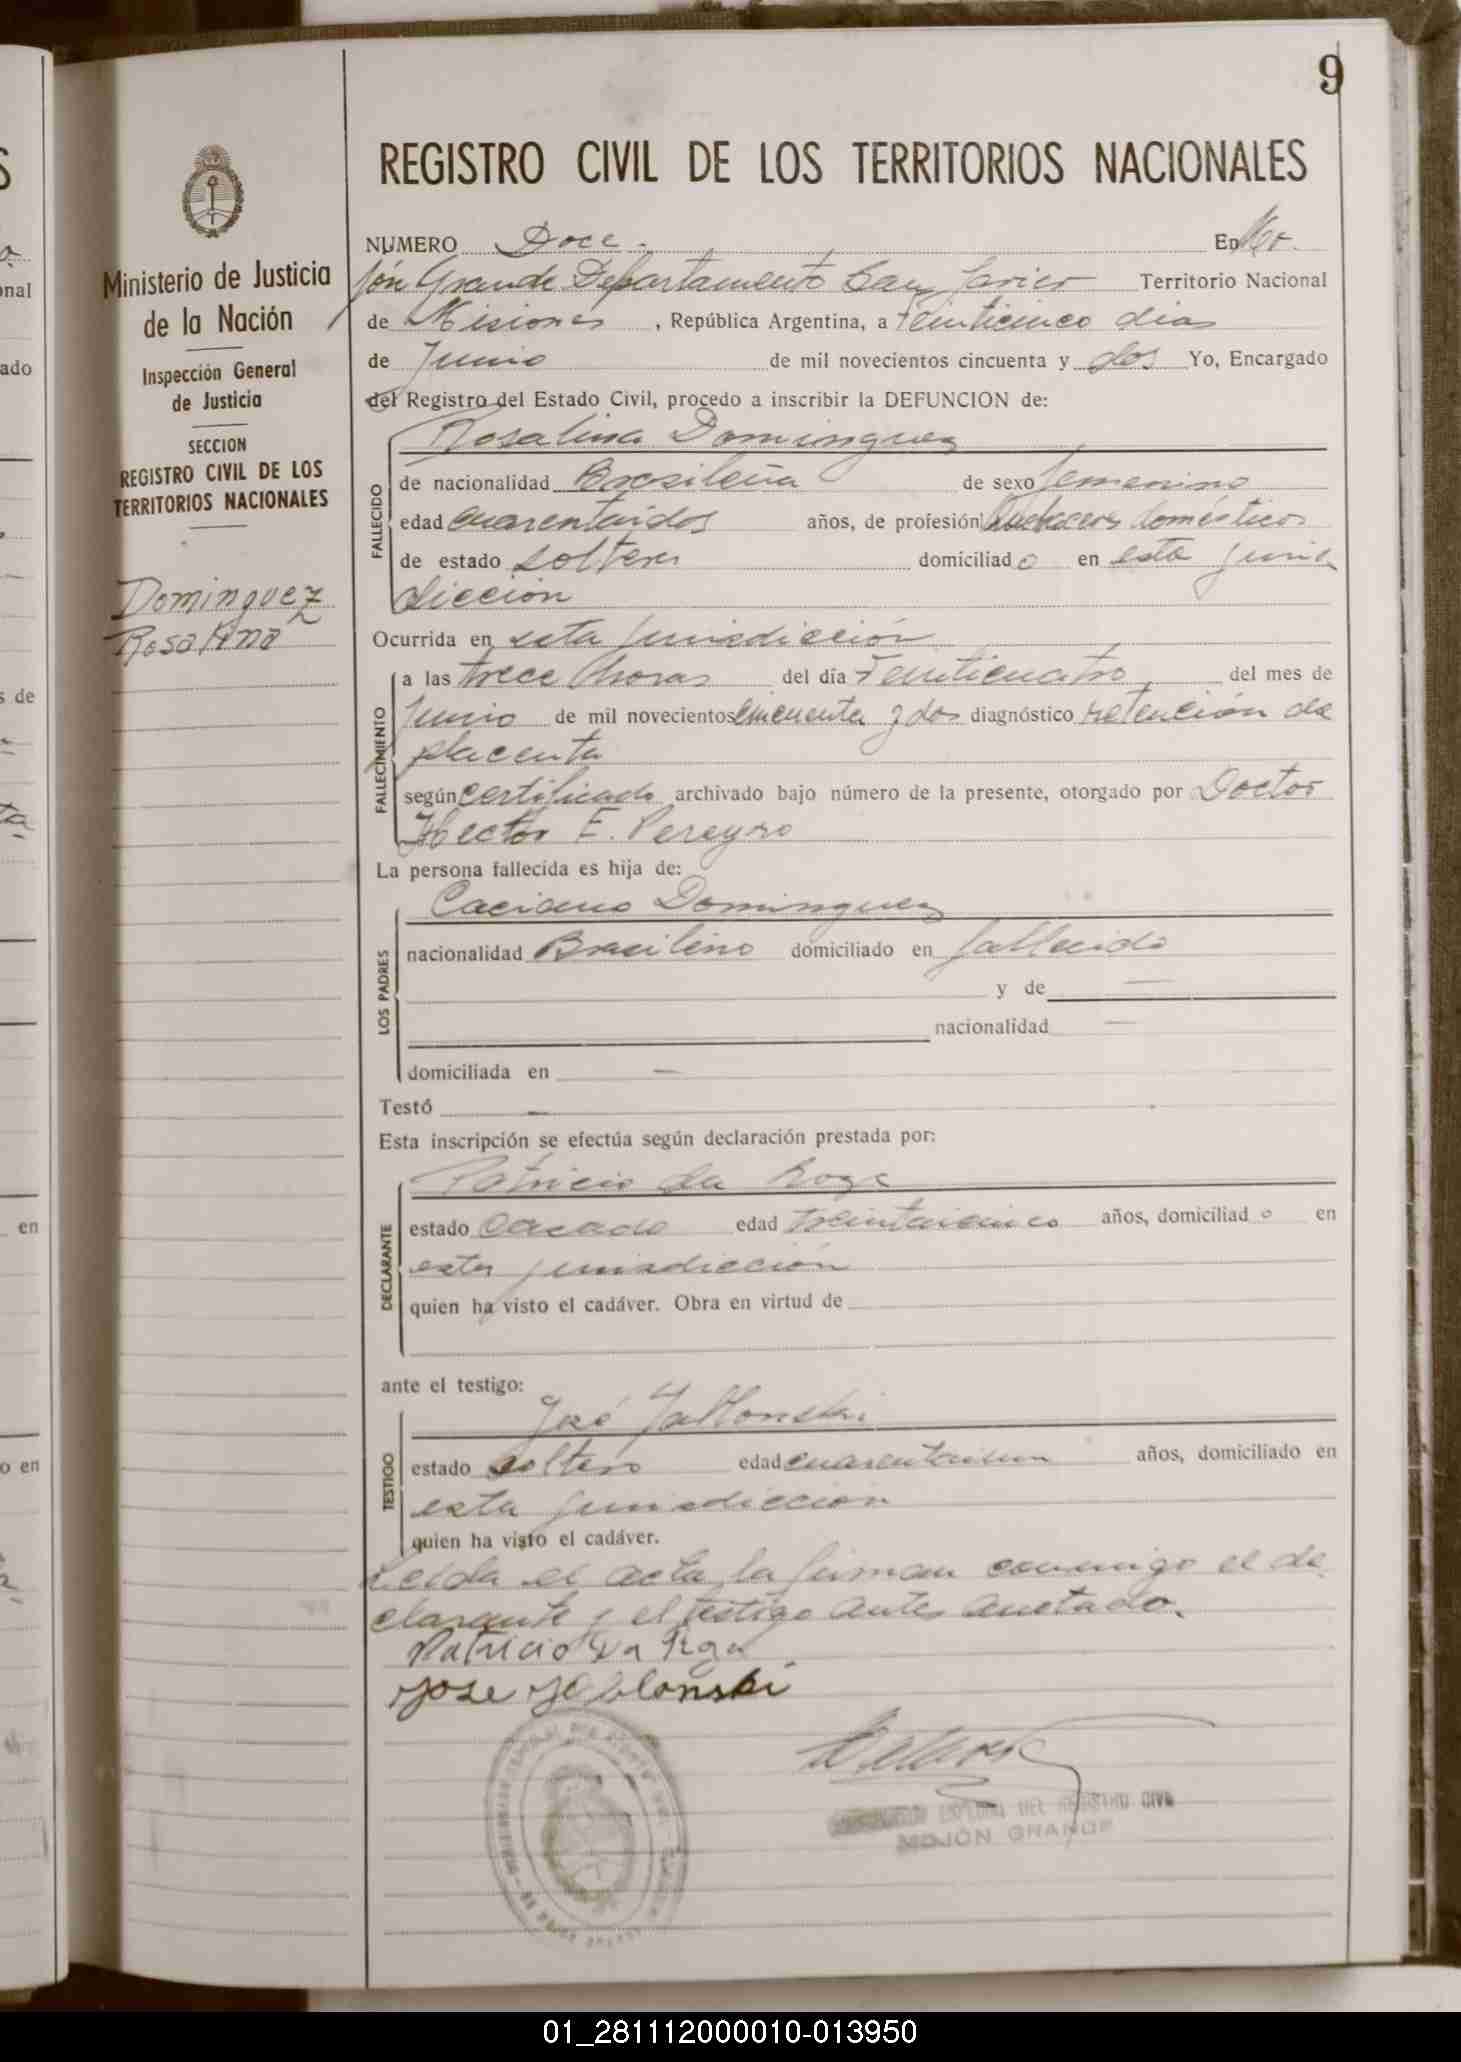 9
REGISTRO CIVIL DE LOS TERRITORIOS NACIONALES
Ministerio de Justicia
de la Nación
Inspección General
de Justicia
SECCION
REGISTRO CIVIL DE LOS
TERRITORIOS NACIONALES
Dominguez
Rosalina
NUMERO Doce. En Mo-
jón Grande Departamento San Javier Territorio Nacional
de Misiones, República Argentina, a Veinticinco dias
de Junio de mil novecientos cincuenta y dos Yo, Encargado
del Registro del Estado Civil, procedo a inscribir la DEFUNCION de:
FALLECIDO
Rosalina Dominguez
de nacionalidad Brasileña de sexo femenino
edad cuarentaidos años, de profesión domésticos
de estado soltera domiciliado en esta juris-
dicción
Ocurrida en esta jurisdicción
FALLECIMIENTO
a las trece horas del día Veinticuatro del mes de
Junio de mil novecientos cincuenta y dos diagnóstico retención de
placenta
según certificado archivado bajo número de la presente, otorgado por Doctor
Hector E. Pereyra
La persona fallecida es hija de:
LOS PADRES
Caciano Dominguez
nacionalidad Brasileno domiciliado en fallecido
y de —
nacionalidad —
domiciliada en —
Testó —
Esta inscripción se efectúa según declaración prestada por:
DECLARANTE
Patricio da Roza
estado Casado edad treintaicinco años, domiciliado en
esta jurisdicción
quien ha visto el cadáver. Obra en virtud de
ante el testigo:
TESTIGO
José Jablonski
estado soltero edad cuarentaiun años, domiciliado en
esta jurisdiccion
quien ha visto el cadáver.
Leida el acta, la firman conmigo el de-
clarante y el testigo antes anotado.
Patricio Da
Jose Jablonski
DEL REGISTRO CIVIL
MOJÓN GRANDE
01_281112000010-013950